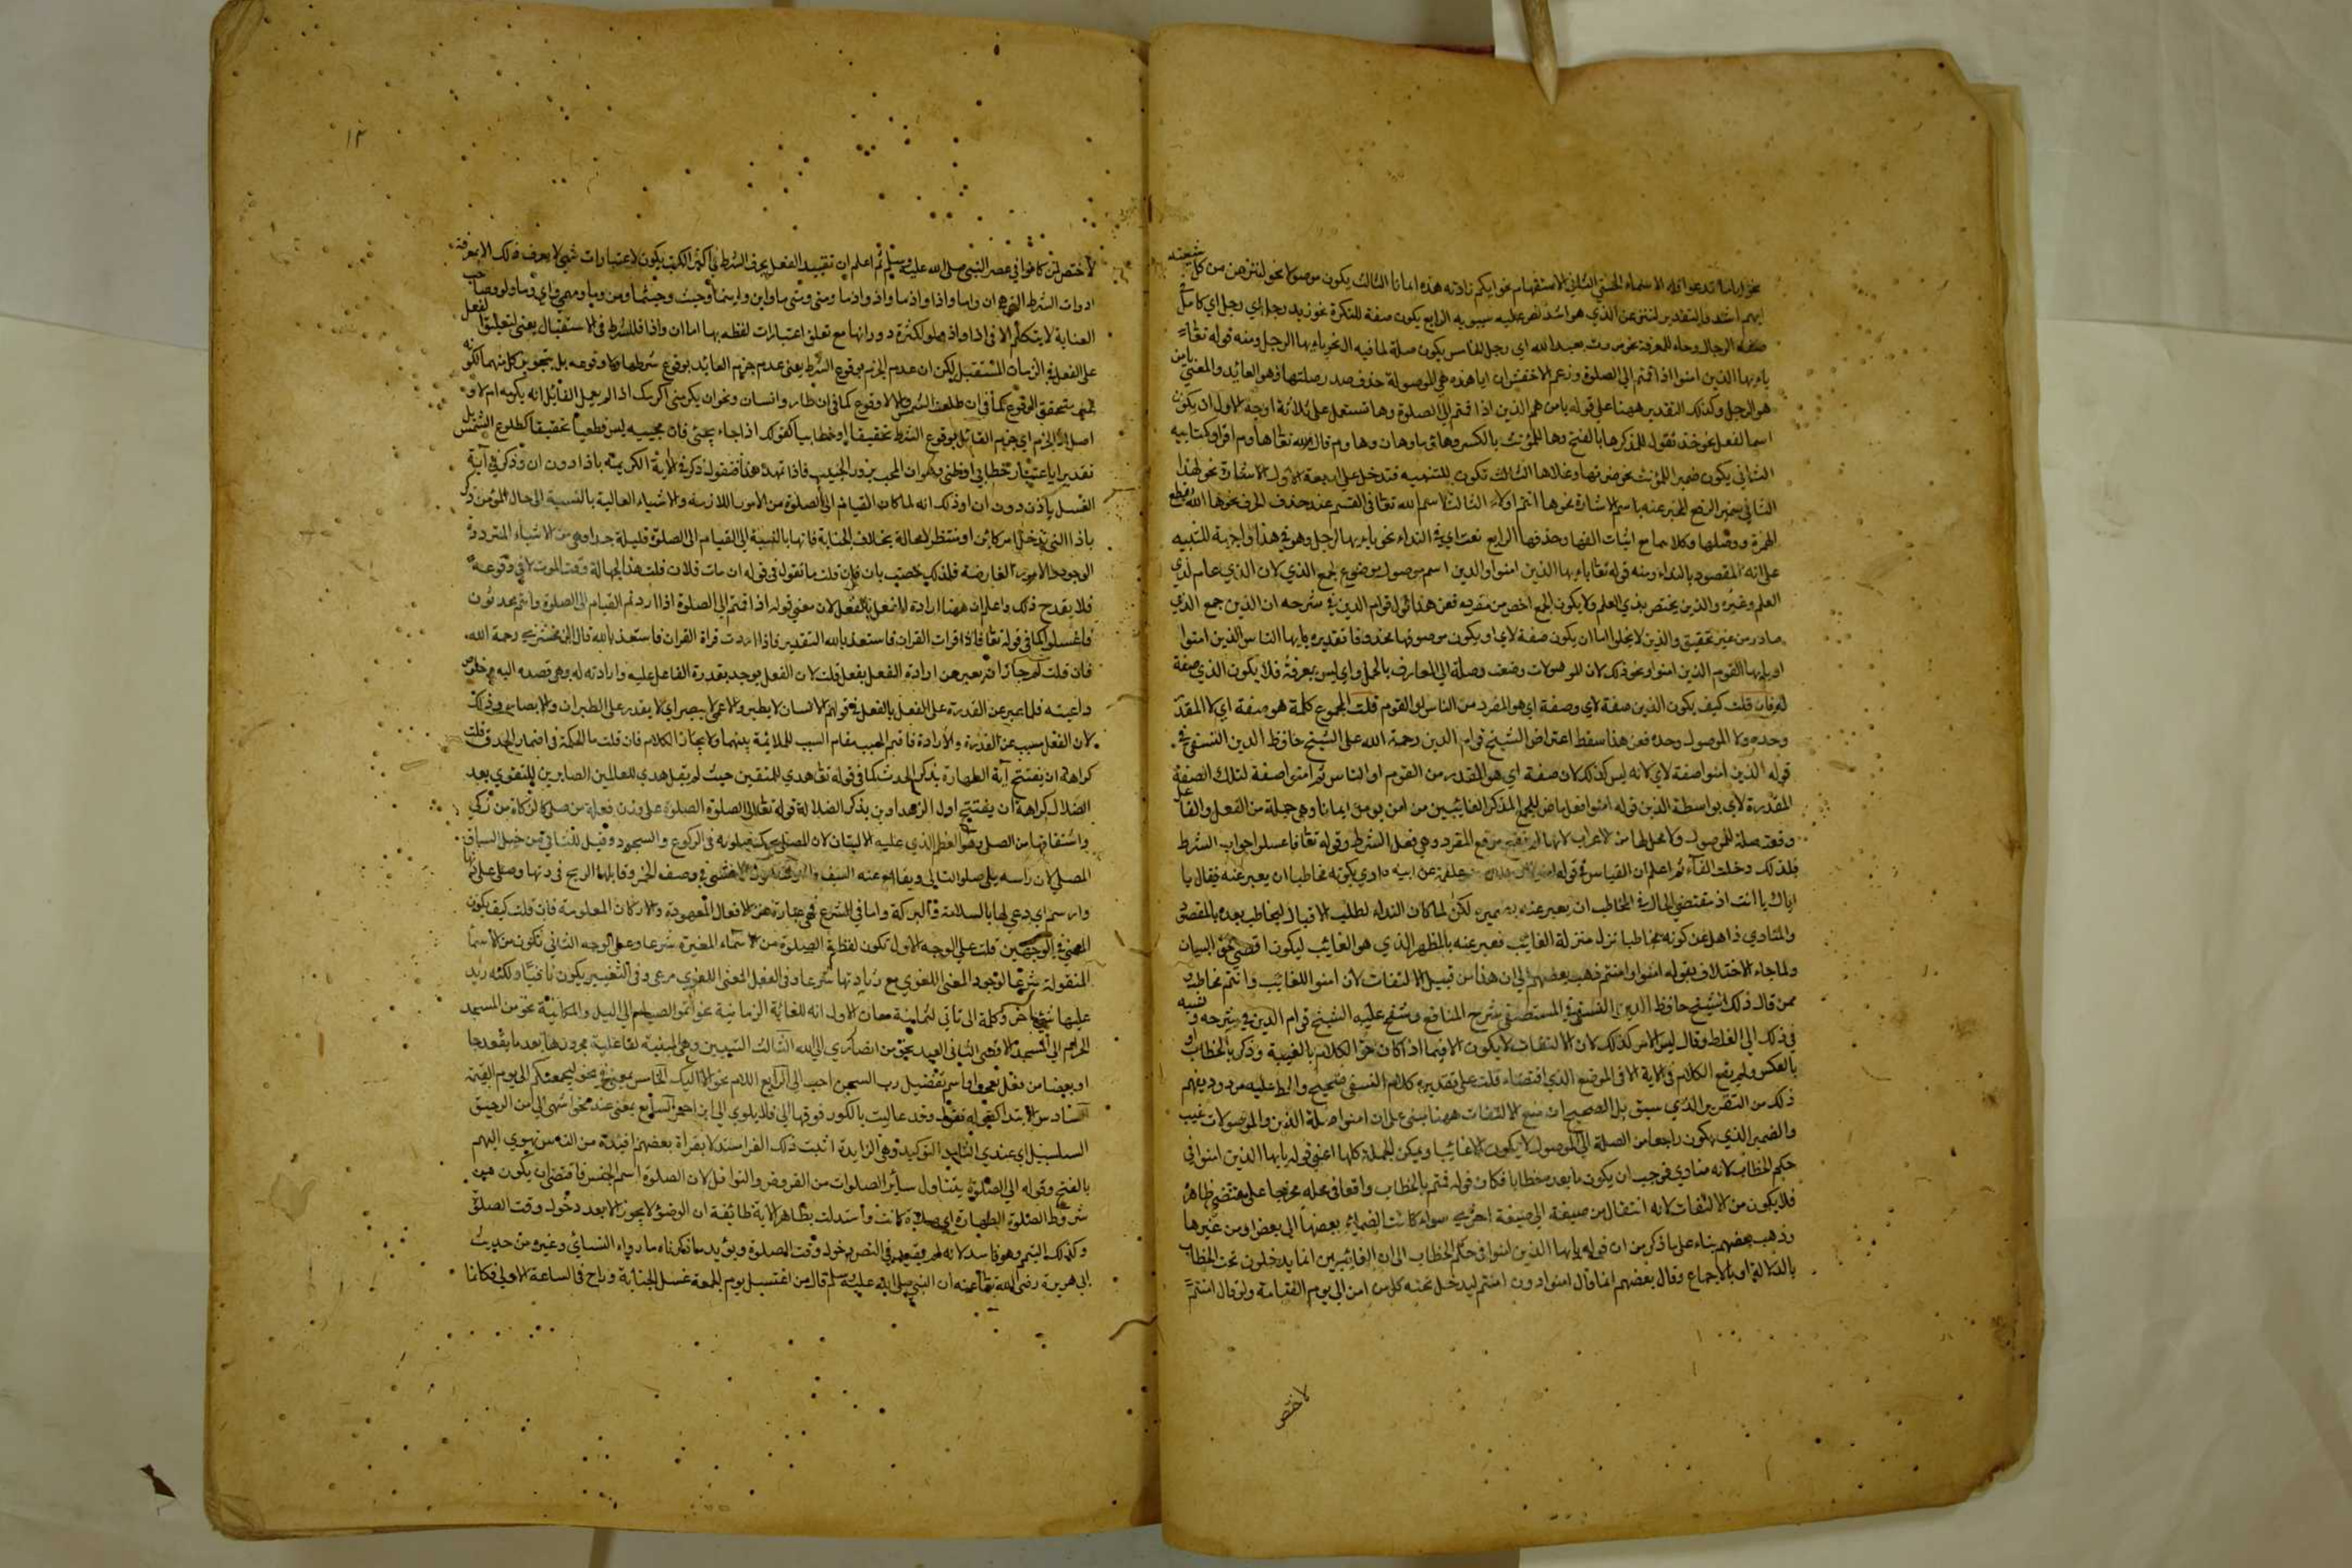 نحو اياما تدعوا فله الاسماء الحسنى الثاني الاستفهام نحو ايكم زادته هذه ايمانا الثالث يكون موصولا نحو لننزعن من كل شيعته
ايهم اشد والتقدير لننزعن الذي هو اشد نص عليه سيبويه الرابع يكون صفة للنكرة نحو زيد رجل اي رجل اي كامل في
صفة الرجال وحالا للمعرفة نحو مررت بعبد الله اي رجل الخامس يكون صلة لما فيه ال نحو يا ايها الرجل ومنه قوله تعالى
يا ايها الذين امنوا اذا قمتم الى الصلوة وزعم الاخفش ان ايا هذه هي الموصولة حذف صدر صلتها وهو العائد والمعنى يا من
هو الرجل وكذلك التقدير ههنا على قوله يا من هم الذين اذا قمتم الى الصلوة وها تستعمل على ثلاثة اوجه الاول ان يكون
اسما لفعل نحو خذ تقول للمذكر ها بالفتح وها للمؤنث بالكسر وهائي وهاوما وهان وهاوم قال الله تعالى هاؤم اقرؤا كتابيه
الثاني يكون ضمير المؤنث نحو ضربها وغلامها الثالث تكون للتنبيه فتدخل على اربعة الاول الاشارة نحو لهذا
الثاني ضمير الرفع المخبر عنه باسم الاشارة نحو ها انتم اولاء الثالث اسم الله تعالى في القسم عند حذف الحرف نحو ها الله بقطع
الهمزة ووصلها وكلاهما مع اثبات الفها وحذفها الرابع نعت اي في النداء نحو يا ايها الرجل وهو في هذا واجبة للتنبيه
على انه المقصود بالنداء ومنه قوله تعالى يا ايها الذين امنوا والذين اسم موصول موضوع لجمع الذي لان الذي عام لذي
العلم وغيره والذين يختص بذي العلم ولا يكون الجمع اخص من مفرده فعن هذا قول قوام الدين في شرحه ان الذين جمع الذي
صادر من غير تحقيق والذين لا يخلوا اما ان يكون صفة لاي او يكون موصوفها محذوفا تقديره يا ايها الناس الذين امنوا
او يا ايها القوم الذين امنوا ونحو ذلك لان الموصولات وضعت وصلة الى المعارف بالجمل واي ليس بمعرفة فلا يكون الذي صفة
له فان قلت كيف يكون الذين صفة لاي وصفة اي هو المفرد من الناس او القوم قلت المجموع كلمة هو صفة اي لا المقدر
وحده ولا الموصول وحده فعن هذا سقط اعتراض الشيخ قوام الدين رحمة الله على الشيخ حافظ الدين النسفي في
قوله الذين امنوا صفة لاي لانه ليس كذلك لان صفة اي هو المقدر من القوم او الناس ثم امنوا صفة لتلك الصفة
المقدرة لاي بواسطة الذين قوله امنوا فعل ماض للجمع المذكر الغائبين من امن يومن ايمانا وهي جملة من الفعل والفاعل
وقعت صلة للموصول ولا محل لها من الاعراب لانها لم تقع موقع المفرد وهي فعل الشرط وقوله تعالى فاغسلوا جواب الشرط
فلذلك دخلت الفاء ثم اعلم ان القياس في قوله
اياك يا انت اذ مقتضى الحال في المخاطب ان يعبر عنه بضميره لكن لما كان النداء لطلب الاقبال ليخاطب بعده بالمقصود
والمنادي ذاهل عن كونه مخاطبا نزل منزلة الغائب فعبر عنه بالمظهر الذي هو الغائب ليكون اقضى لحق البيان
ولما جاء الاختلاف بقوله امنوا وامنتم ذهب بعضهم الى ان هذا من قبيل الالتفات لان امنوا للغائب وانتم مخاطب و
ممن قال ذلك الشيخ حافظ الدين النسفي في المستصفى شرح المنافع وشنع عليه الشيخ قوام الدين في شرحه ونسبه
في ذلك الى الغلط وقال ليس الامر كذلك لان الالتفات لا يكون الا فيما اذا كان حق الكلام بالغيبة وذكر بالخطاب او
بالعكس ولم يقع الكلام في الاية الا في الموضع الذي اقتضاه قلت على تقديره كلام النسفي صحيح والحط عليه مردود يفهم
ذلك من التقرير الذي سبق بل الصحيح ان منع الالتفات ههنا مبني على ان امنوا صلة الذين والموصولات غيب
والضمير الذي يكون راجعا من الصلة الى الموصول لا يكون الا غائبا ويمكن للجملة كلها اعني قوله يا ايها الذين امنوا في
حكم الخطاب لانه منادي فوجب ان يكون ما بعده خطابا فكان قوله قمتم بالخطاب واقعا في محله مخرجا على مقتضى ظاهره
فلا يكون من الالتفات لانه انتقال من صيغة الى صيغة اخرى سواء كانت الضمائر بعضها الى بعض او من غيرها
وذهب بعضهم بناء على ما ذكر من ان قوله يا ايها الذين امنوا في حكم الخطاب الى ان الغائبين انما يدخلون تحت الخطاب
بالدلالة او بالاجماع وقال بعضهم انما قال امنوا دون امنتم ليدخل تحته كل من امن الى يوم القيامة ولو قال امنتم
لاختص
١٣
لاختص لمن كانوا في عصر النبي صلى الله عليه وسلم ثم اعلم ان تقييد الفعل بحرف الشرط في اكثر الكتب يكون لاعتبارات شتى لا يعرف ذلك الا بمعرفة
ادوات الشرط التي هي ان واما واذا واذ ما واذ واذما ومتى ومتى ما واين واينما وحيث وحيثما ومن وما ومهما واي وما ولو وصاحب
العناية لا يتكلم الا في اذا واذ ولو لكثرة دورانها مع تعلق اعتبارات لفظه بها اما ان واذا فللشرط في الاستقبال يعنى لتعليق الفعل
على الفعل في الزمان المستقبل لكن ان عدم الجزم بوقوع الشرط يعنى عدم جزم القائد بوقوع شرطها ولا وقوعه بل بتجويز كل منهما لكونه
اصل اذا الجزم اي جزم القائل بوقوع الشرط تحقيقا او خطابيا كقولك اذا جاء يحيى فان مجيه ليس قطعيا تحقيقا كطلوع الشمس بل
تقديرا باعتبار خطابي اوظني وهو ان المحب يزور الحبيب فاذا تمهد هذا فنقول ذكر في الاية الكريمة باذا دون ان وذكر في آية
الغسل بان دون اذا وذلك انه لما كان القيام الى الصلوة من الامور اللازمة والاشياء الغالبة بالنسبة الى حال المؤمن ذكر
باذا التي تدخل في امر كائن او منتظر لا محالة بخلاف الجنابة فانها بالنسبة الى القيام الى الصلوة قليلة جدا وهي من الاشياء المترددة
الوجود والامور العارضة فلذلك خصت بان فان قلت ما تقول في قوله ان مات فلان قلت هذا الجهالة وقت الموت لا في وقوعه
فلا يقدح ذلك واعلم ان ههنا ارادة الفعل بالفعل لان معنى قوله اذا قمتم الى الصلوة اذا اردتم القيام الى الصلوة وانتم محدثون
فاغسلوا كما في قوله تعالى فاذا قرات القران فاستعذ بالله التقدير فاذا اردت قراة القران فاستعذ بالله قال الزمخشري رحمة الله
فان قلت لم جاز ان يعبر عن ارادة الفعل بفعل قلت لان الفعل يوجد بقدرة الفاعل عليه وارادته له وهي قصده اليه وخلوص
داعيته فكما عبر عن القدرة على الفعل بالفعل في قولهم الانسان لا يطير والاعمى لا يبصر اي لا يقدر على الطيران والابصار وذلك
لان الفعل مسبب عن القدرة والارادة فاقيم المسبب مقام السبب للملابسة بينهما ولايجاز الكلام فان قلت ما الحكمة في اضمار الحدث قلت
كراهة ان يفتتح آية الطهارة بذكر الحدث كما في قوله تعالى هدي للمتقين حيث لم يقل هدي للضالين الصابرين للتقوي بعد
الضلال كراهة ان يفتتح اول الزهراوين بذكر الضلالة قوله تعالى الى الصلوة الصلوة على وزن فعلة من صلى كالزكاة من زكي
واشتقاقها من الصلى وهو العظم الذي عليه الاليتان لان المصلى يحرك صلويه في الركوع والسجود وقيل للثاني من خيل السباق
المصلى لان راسه يلي صلوا السابق
وارتسم اي دعى لها بالسلامة والبركة واما في الشرع فهي عبارة عن الافعال المعهودة والاركان المعلومة فان قلت كيف يكون
المعنى في الوجهين قلت على الوجه الاول تكون لفظة الصلوة من الاسماء المغيرة شرعا وعلى الوجه الثاني تكون من الاسما
المنقولة شرعا لوجود المعنى اللغوي مع زيادتها شرعا وفي الفعل المعنى اللغوي مرعى وفي التغيير يكون باقيا ولكنه زيد
عليها شي آخر وكلمة الى تأتي لثمانية معان الاول انه للغائة الزمانية نحو اتموا الصيام الى الليل والمكانية نحو من المسجد
الحرام الى المسجد الاقصى الثاني المعية نحو من انصاري الى الله الثالث التبيين وهي المبينة لفاعلية مجرورها بعد ما يفيد حبا
او بغضا من فعل تعجب او اسم تفضيل رب السجن احب الى الرابع اللام نحو الامر اليك الخامس بمعنى في نحو ليجمعنكم الى يوم القيمة
السادس الابتدا كقوله تقول وقد عاليت بالكور فوقها الى فلا يروي الى ابن احمرا السابع بمعنى عند نحو اشهى الى من الرحيق
السلسبيل اي عندي الثامن التوكيد وهي الزايدة اثبت ذلك الفراء مستدلا بقراة بعضهم افئدة من الناس تهوي اليهم
بالفتح وقوله الى الصلوة يتناول سائر الصلوات من الفروض والنوافل لان الصلوة اسم الجنس فاقتضى ان يكون من
شروط الصلوة الطهارة اي صلاة كانت وأستدلت بظاهر الاية طائفة ان الوضؤ لا يجوز الا بعد دخول وقت الصلوة
وكذلك التيمم وهو فاسد لانه لم يقيد في النص دخول وقت الصلوة ويؤيد ما ذكرناه ما رواه النسائي وغيره من حديث
ابي هريرة رضي الله تعالى عنه ان النبي صلى الله عليه وسلم قال من اغتسل يوم الجمعة غسل الجنابة وراح في الساعة الاولى فكانما